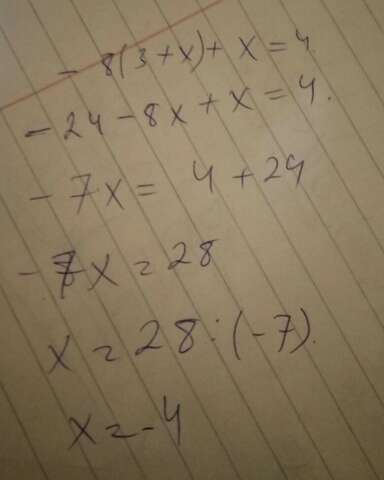 - 8(3+x)+ x = 4.
- 24 - 8x + x = 4.
- 7x = 4 + 24
- 7x = 28
x = 28 : (-7).
x = -4